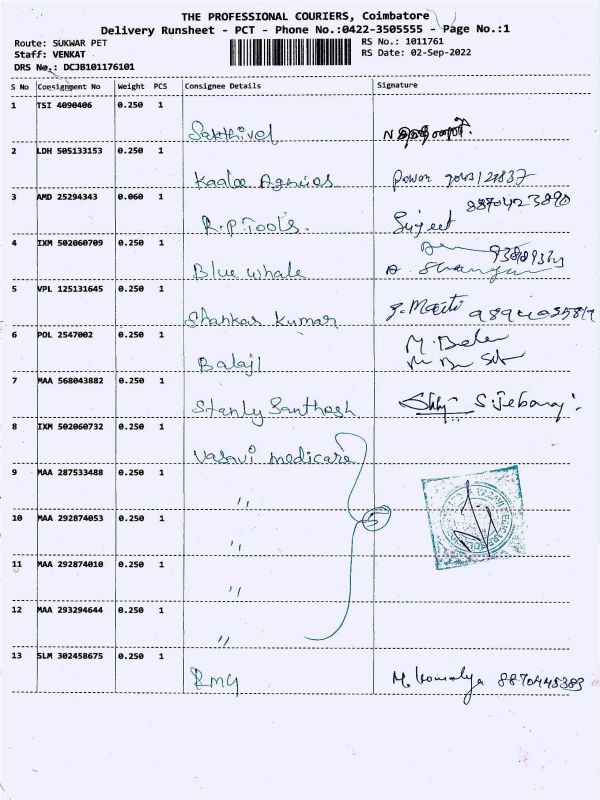 THE PROFESSIONAL COURIERS, Coimbatore
Delivery Runsheet - PCT - Phone No.:0422-3505555 - Page No.:1
Route: SUKWAR PET
RS No.: 1011761
Staff: VENKAT
RS Date: 02-Sep-2022
DRS No.: DCJB101176101
S No Consignment No Weight PCS Consignee Details Signature
1 TSI 4090406 0.250 1
Sakthivel
2 LDH 505133153 0.250 1
3 AMD 25294343 0.060 1
8870423890
R.P Tools. Sujeet
4 IXM 502060709 0.250 1
Blue whale
5 VPL 125131645 0.250 1
Shankar Kumar
6 POL 2547002 0.250 1
Balaji
7 MAA 568043882 0.250 1
Stanly Santhosh
8 IXM 502060732 0.250 1
Vasavi medicare
9 MAA 287533488 0.250 1
"
10 MAA 292874053 0.250 1
5
"
11 MAA 292874010 0.250 1
"
12 MAA 293294644 0.250 1
"
13 SLM 302458675 0.250 1
RMY 8870445383